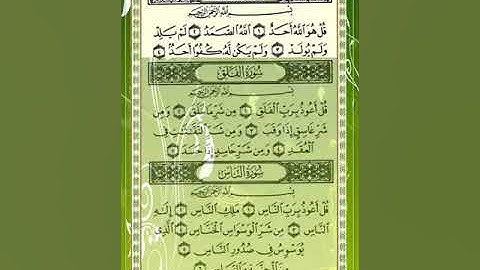 بِسْمِ ٱللَّهِ ٱلرَّحْمَٰنِ ٱلرَّحِيمِ
قُلْ هُوَ ٱللَّهُ أَحَدٌ ١ ٱللَّهُ ٱلصَّمَدُ ٢ لَمْ يَلِدْ
وَلَمْ يُولَدْ ٣ وَلَمْ يَكُن لَّهُۥ كُفُوًا أَحَدٌۢ ٤
سُورَةُ الْفَلَقِ
بِسْمِ ٱللَّهِ ٱلرَّحْمَٰنِ ٱلرَّحِيمِ
قُلْ أَعُوذُ بِرَبِّ ٱلْفَلَقِ ١ مِن شَرِّ مَا خَلَقَ ٢ وَمِن
شَرِّ غَاسِقٍ إِذَا وَقَبَ ٣ وَمِن شَرِّ ٱلنَّفَّٰثَٰتِ فِى
ٱلْعُقَدِ ٤ وَمِن شَرِّ حَاسِدٍ إِذَا حَسَدَ ٥
سُورَةُ النَّاسِ
بِسْمِ ٱللَّهِ ٱلرَّحْمَٰنِ ٱلرَّحِيمِ
قُلْ أَعُوذُ بِرَبِّ ٱلنَّاسِ ١ مَلِكِ ٱلنَّاسِ ٢ إِلَٰهِ
ٱلنَّاسِ ٣ مِن شَرِّ ٱلْوَسْوَاسِ ٱلْخَنَّاسِ ٤ ٱلَّذِى
يُوَسْوِسُ فِى صُدُورِ ٱلنَّاسِ ٥
مِنَ ٱلْجِنَّةِ وَٱلنَّاسِ ٦